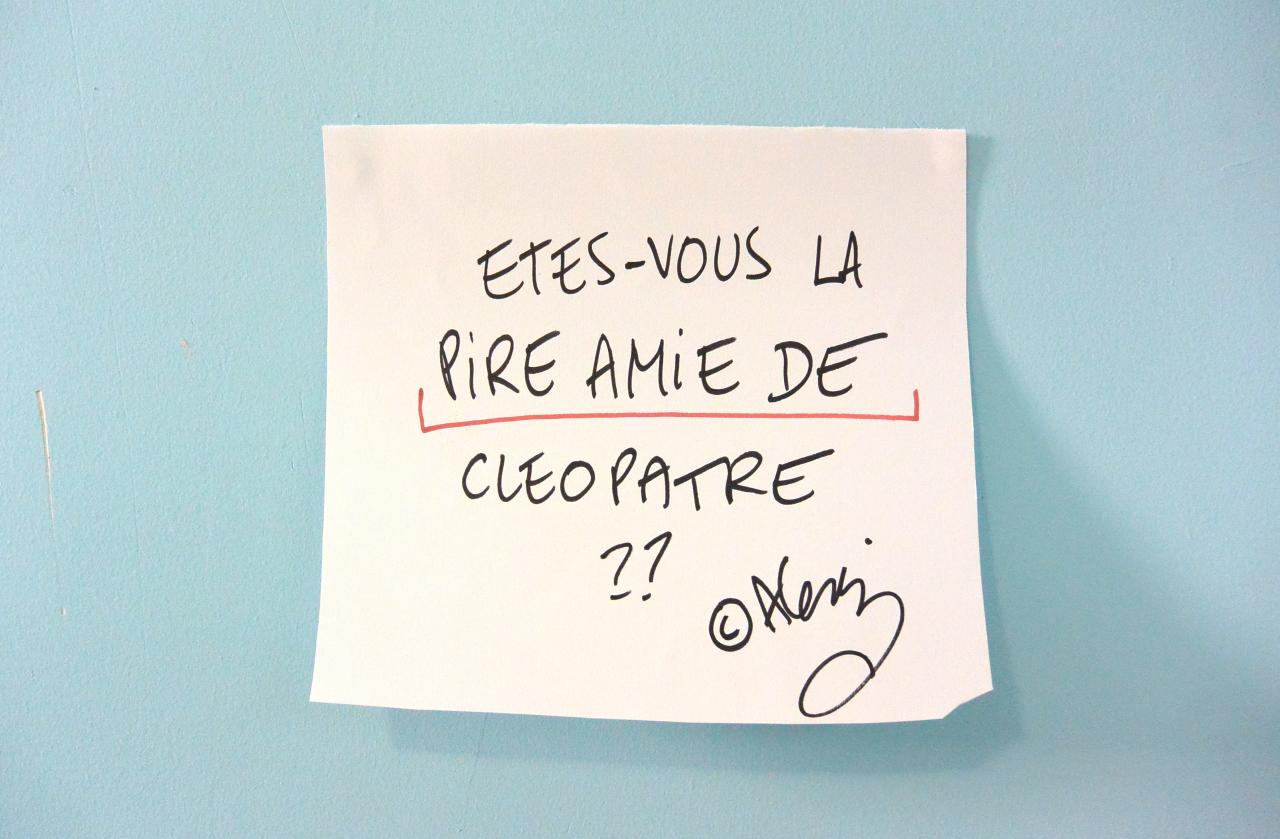 ETES-VOUS LA
PiRE AMiE DE
CLEOPATRE
??
© Alexis